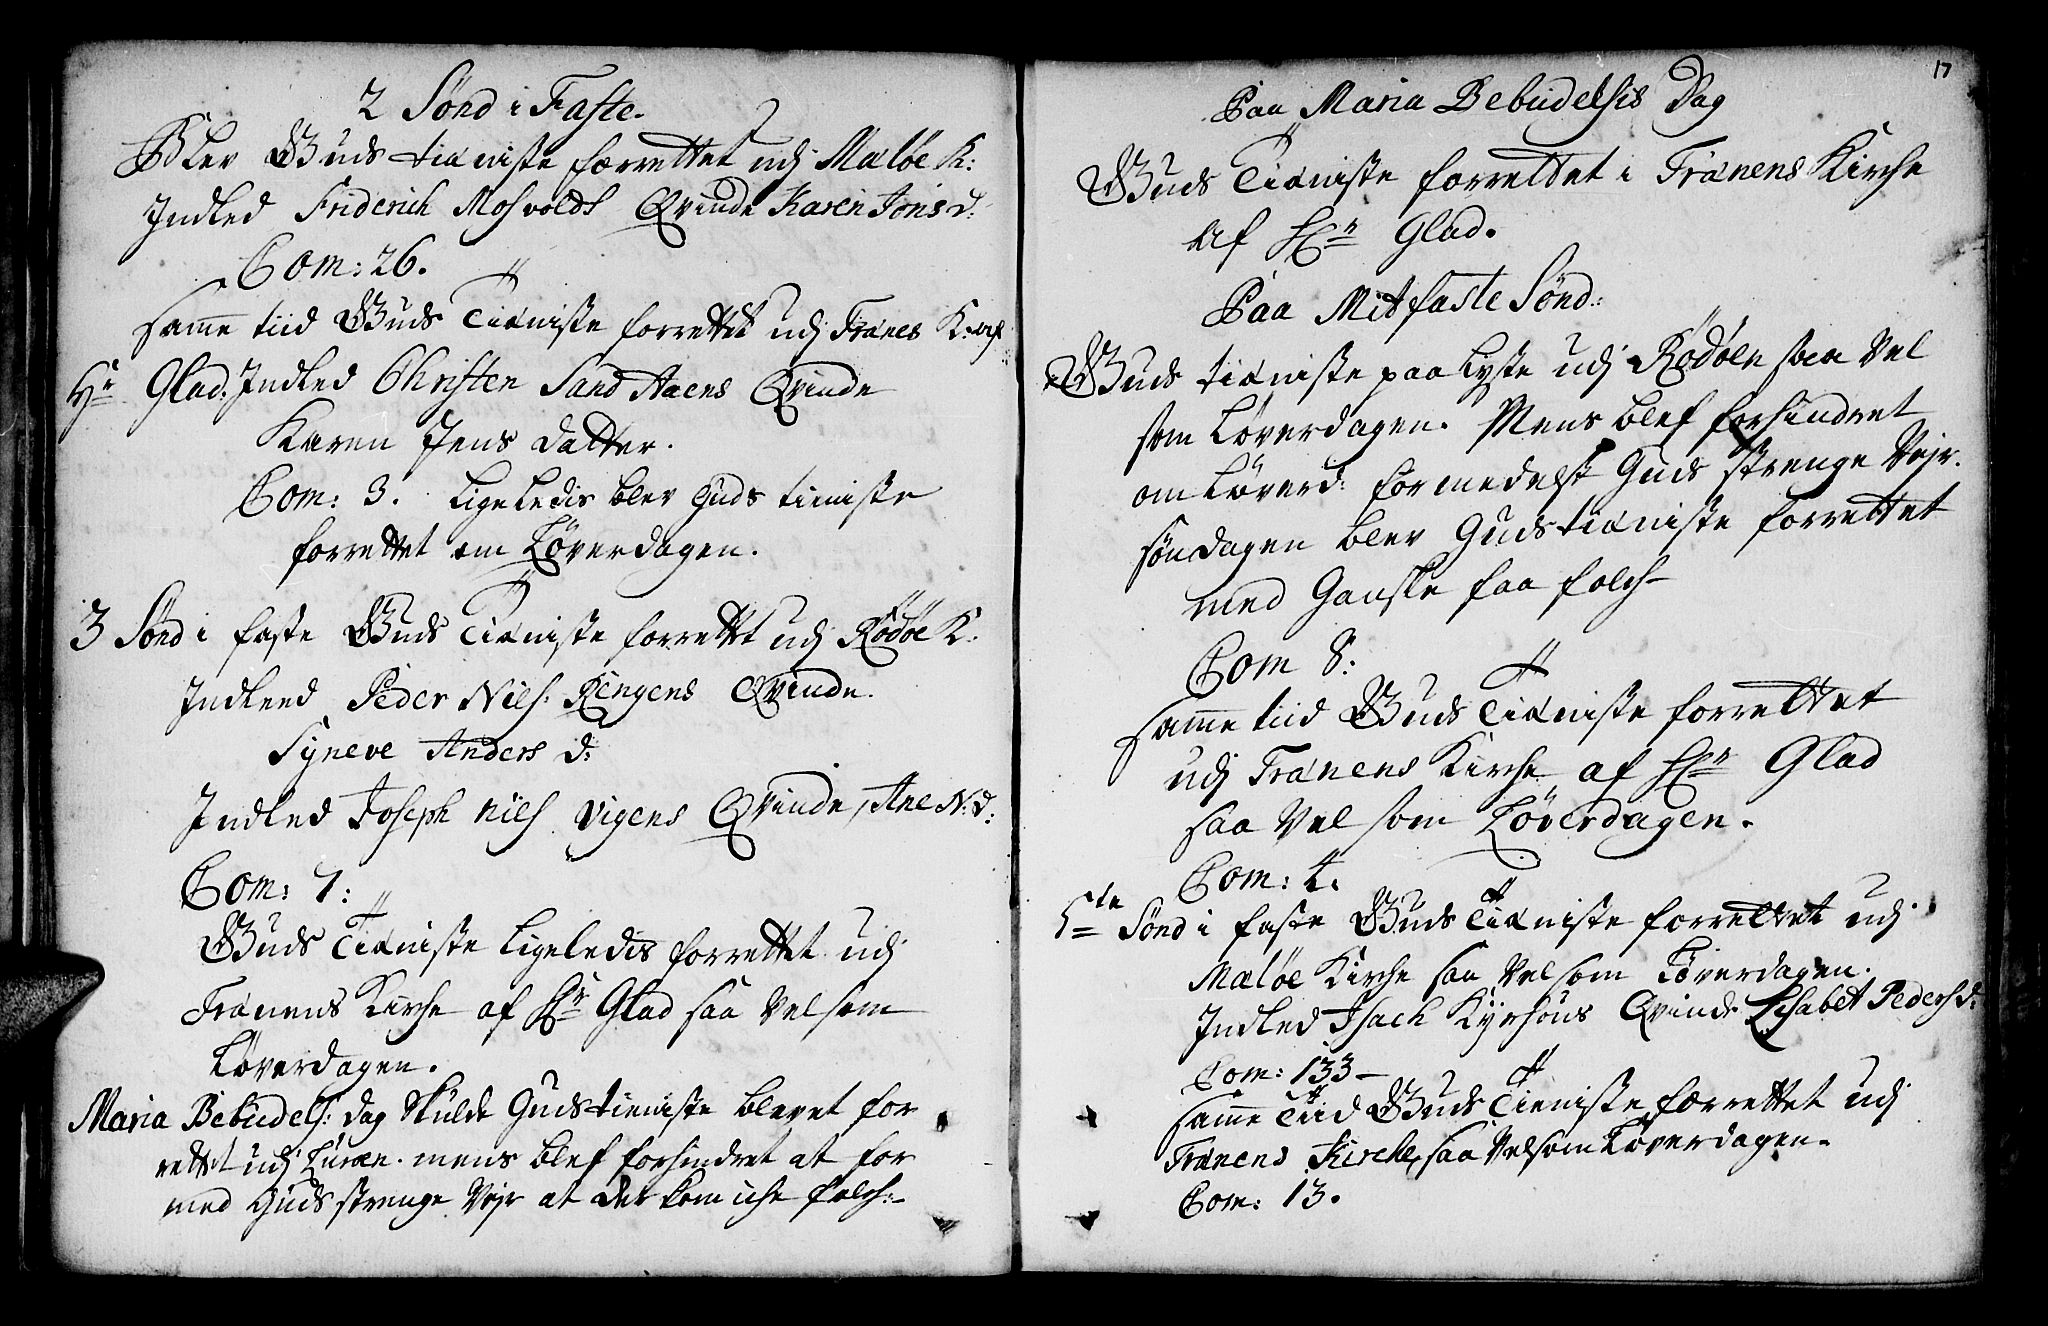 2 Sønd i Faste.
Blev Guds tieniste forrettet udj Meløe K:
Indled Friderich Mosvolds Qvinde Karen Jons d:
Com: 26.
samme tiid Guds Tieniste forrettet udj Trænes K: af
Hr Glad. Indled Christen Sand Aaens Qvinde
Karen Jens datter.
Com: 3. ligeledis blev Guds tieniste
forrettet om Løverdagen.
3 Sønd i faste Guds Tieniste forrettet udj Rødøe K:
Indleed Peder Niels: Ringens Qvinde.
Syneve Anders d:
Indled Joseph Niels Vigens Qvinde, Ane N: d:
Com: 7:
Guds Tieniste ligeledis forrettet udj
Trænens Kirche af Hr Glad saa vel som
Løverdagen.
Maria Bebudels: dag skulde Guds tieniste blevet for
rettet udj Lurøen. mens blef forhindret at for
med Guds strenge Vejr at der kom iche folch:-
17
Paa Maria Bebudelsis Dag
Guds Tieniste forrettet i Trænens Kirche
af Hr Glad.
Paa Mitfaste Sønd:
Guds tieniste paa lyste udj Rødøen saa vel
som Løverdagen. Mens blef forhindret
om Løverd: formedelst Guds strenge Vejr.
søndagen blev Guds tieniste forrettet
med Ganske faa folch-
Com 8:
samme tiid Guds Tieniste forrettet
udj Trænens Kirche af Hr Glad
saa vel som Løverdagen.
Com: 4.
5te Sønd i faste Guds Tieniste forrettet udj
Meløe Kirche saa vel som Løverdagen.
Indled Isach Kyrhøus Qvinde Lisabet Peders d:
Com: 133-
samme Tiid Guds Tieniste forrettet udj
Trænens Kirche, saa vel som Løverdagen.
Com: 13.